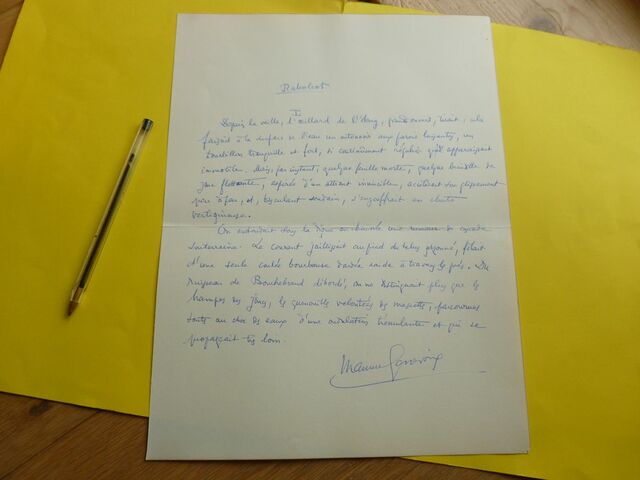 Raboliot
I
Depuis la veille, l'œillard de l'étang, grand ouvert, tirait : cela
faisait à la surface de l'eau un entonnoir aux parois luisantes, un
tourbillon tranquille et fort, si continûment régulier qu'il apparaissait
immobile. Mais, par instant, quelque feuille morte, quelque brindille de
jonc flottante, aspirée d'un attrait invincible, accélérait son glissement
peu à peu, et, basculant soudain, s'engouffrait en chute
vertigineuse.
On entendait sous la digue une rumeur de cascade
souterraine. Le courant jaillissait au pied du talus gazonné, filait
d'une seule coulée bourbeuse dardée raide à travers les prés. Du
ruisseau de Bouchebrand débordé, on ne distinguait plus que les
hampes des joncs, les quenouilles veloutées des massettes, parcourues
toutes au choc des eaux d'une ondulation tremblante et qui se
propageait très loin.
Maurice Genevoix